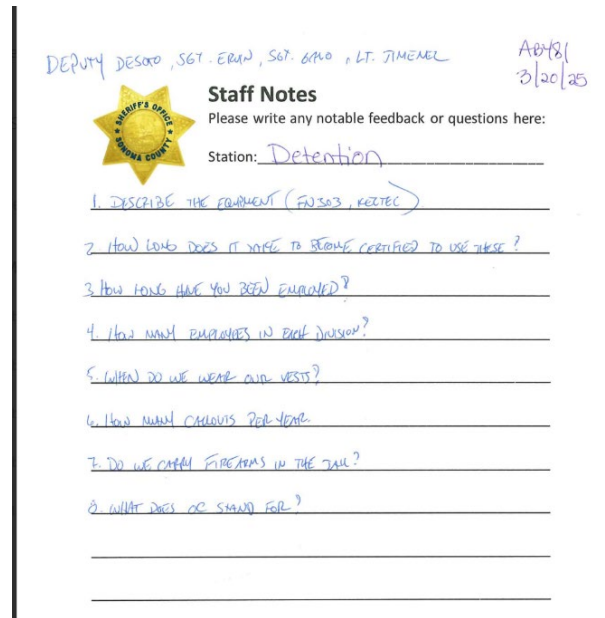 DEPUTY DESOTO, SGT. ERVIN, SGT. GALLO, LT. JIMENEZ
AB481
3/20/25
SHERIFF'S OFFICE
SONOMA COUNTY
Staff Notes
Please write any notable feedback or questions here:
Station: Detention
1. DESCRIBE THE EQUIPMENT (FN303, KELTEC)
2. HOW LONG DOES IT TAKE TO BECOME CERTIFIED TO USE THESE?
3. HOW LONG HAVE YOU BEEN EMPLOYED?
4. HOW MANY EMPLOYEES IN EACH DIVISION?
5. WHEN DO WE WEAR OUR VESTS?
6. HOW MANY CALLOUTS PER YEAR.
7. DO WE CARRY FIREARMS IN THE JAIL?
8. WHAT DOES OC STAND FOR?